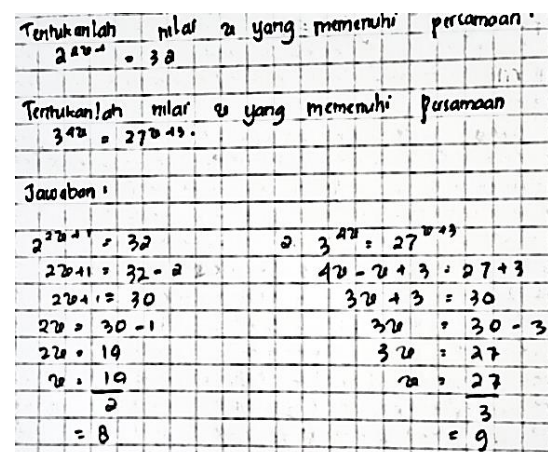 Tentukanlah nilai x yang memenuhi persamaan.
2^2x+1 = 32
Tentukanlah nilai x yang memenuhi persamaan
3^4x = 27^x+3.
Jawaban :
2^2x+1 = 32
2x+1 = 32 - 2
2x+1 = 30
2x = 30 - 1
2x = 19
x = 19/2
= 8
2. 3^4x = 27^x+3
4x - x + 3 = 27+3
3x + 3 = 30
3x = 30 - 3
3x = 27
x = 27/3
= 9